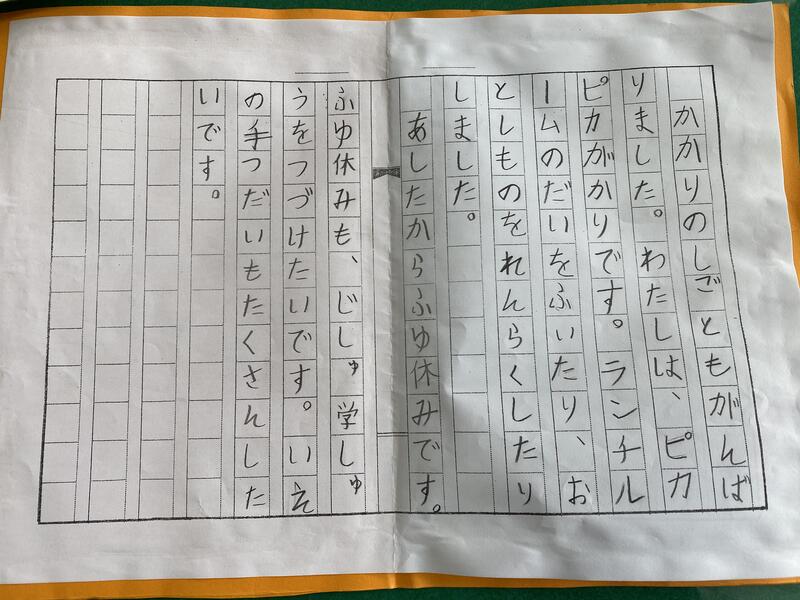 かかりのしごともがんば
りました。わたしは、ピカ
ピカがかりです。ランチル
ームのだいをふいたり、お
としものをれんらくしたり
しました。
あしたからふゆ休みです。
ふゆ休みも、じしゅ学しゅ
うをつづけたいです。いえ
の手つだいもたくさんした
いです。